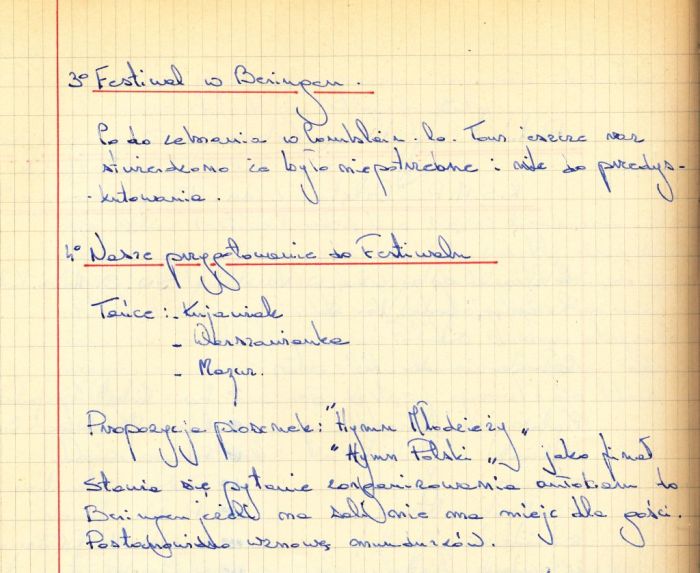 3° Festiwal w Beringen.
Co do zebrania w Comblain-la-Tour jeszcze raz
stwierdzono że było niepotrzebne i nile do przedys-
-kutowania.
4° Nasze przygotowanie do Festiwalu
Tańce: - Kujawiak
- Warszawianka
- Mazur.
Propozycja piosenek: "Hymn Młodzieży"
"Hymn Polski" jako finał
Stawia się pytanie zorganizowania autokaru do
Beringen jeżeli na sali nie ma miejc dla gości.
Postanowiono wznowę mundurków.